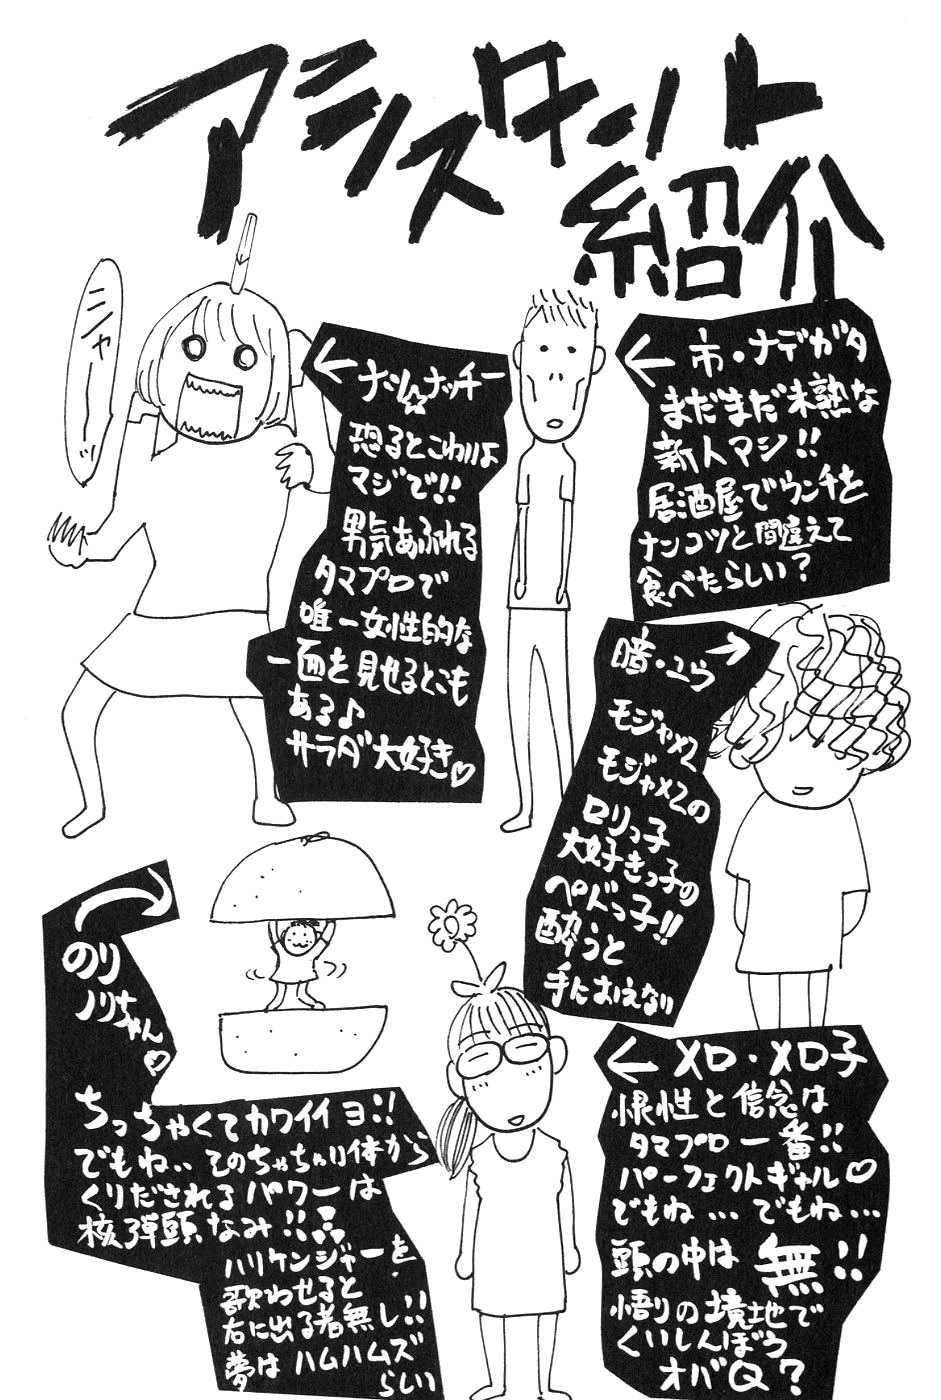 アシスタント
紹介
ミシャーッ
← ナツ☆ナッチー
怒るとこわいよ
マジで!!
男気あふれる
タマプロで
唯一女性的な
一面を見せるとこも
ある♪
サラダ大好き♡
← 市・ナデガタ
まだまだ未熟な
新人マシ!!
居酒屋でウンチを
ナンコツと間違えて
食べたらしい?
暗・ユウ →
モジャメス
モジャメスの
ロリっ子
大好きっ子の
ペドっ子!!
酔うと
手におえない
のり
ノリちゃん♡
ちっちゃくてカワイイヨ!!
でもね‥このちゃちゃり体から
くりだされるパワーは
核弾頭なみ!!
ハリケンジャーを
歌わせると
右に出る者無し!!
夢はハムハムズ
らい
← メロ・メロ子
根性と信念は
タマプロ一番!!
パーフェクトギャル♡
でもね…でもね…
頭の中は無!!
悟りの境地で
くいしんぼう
オバQ?